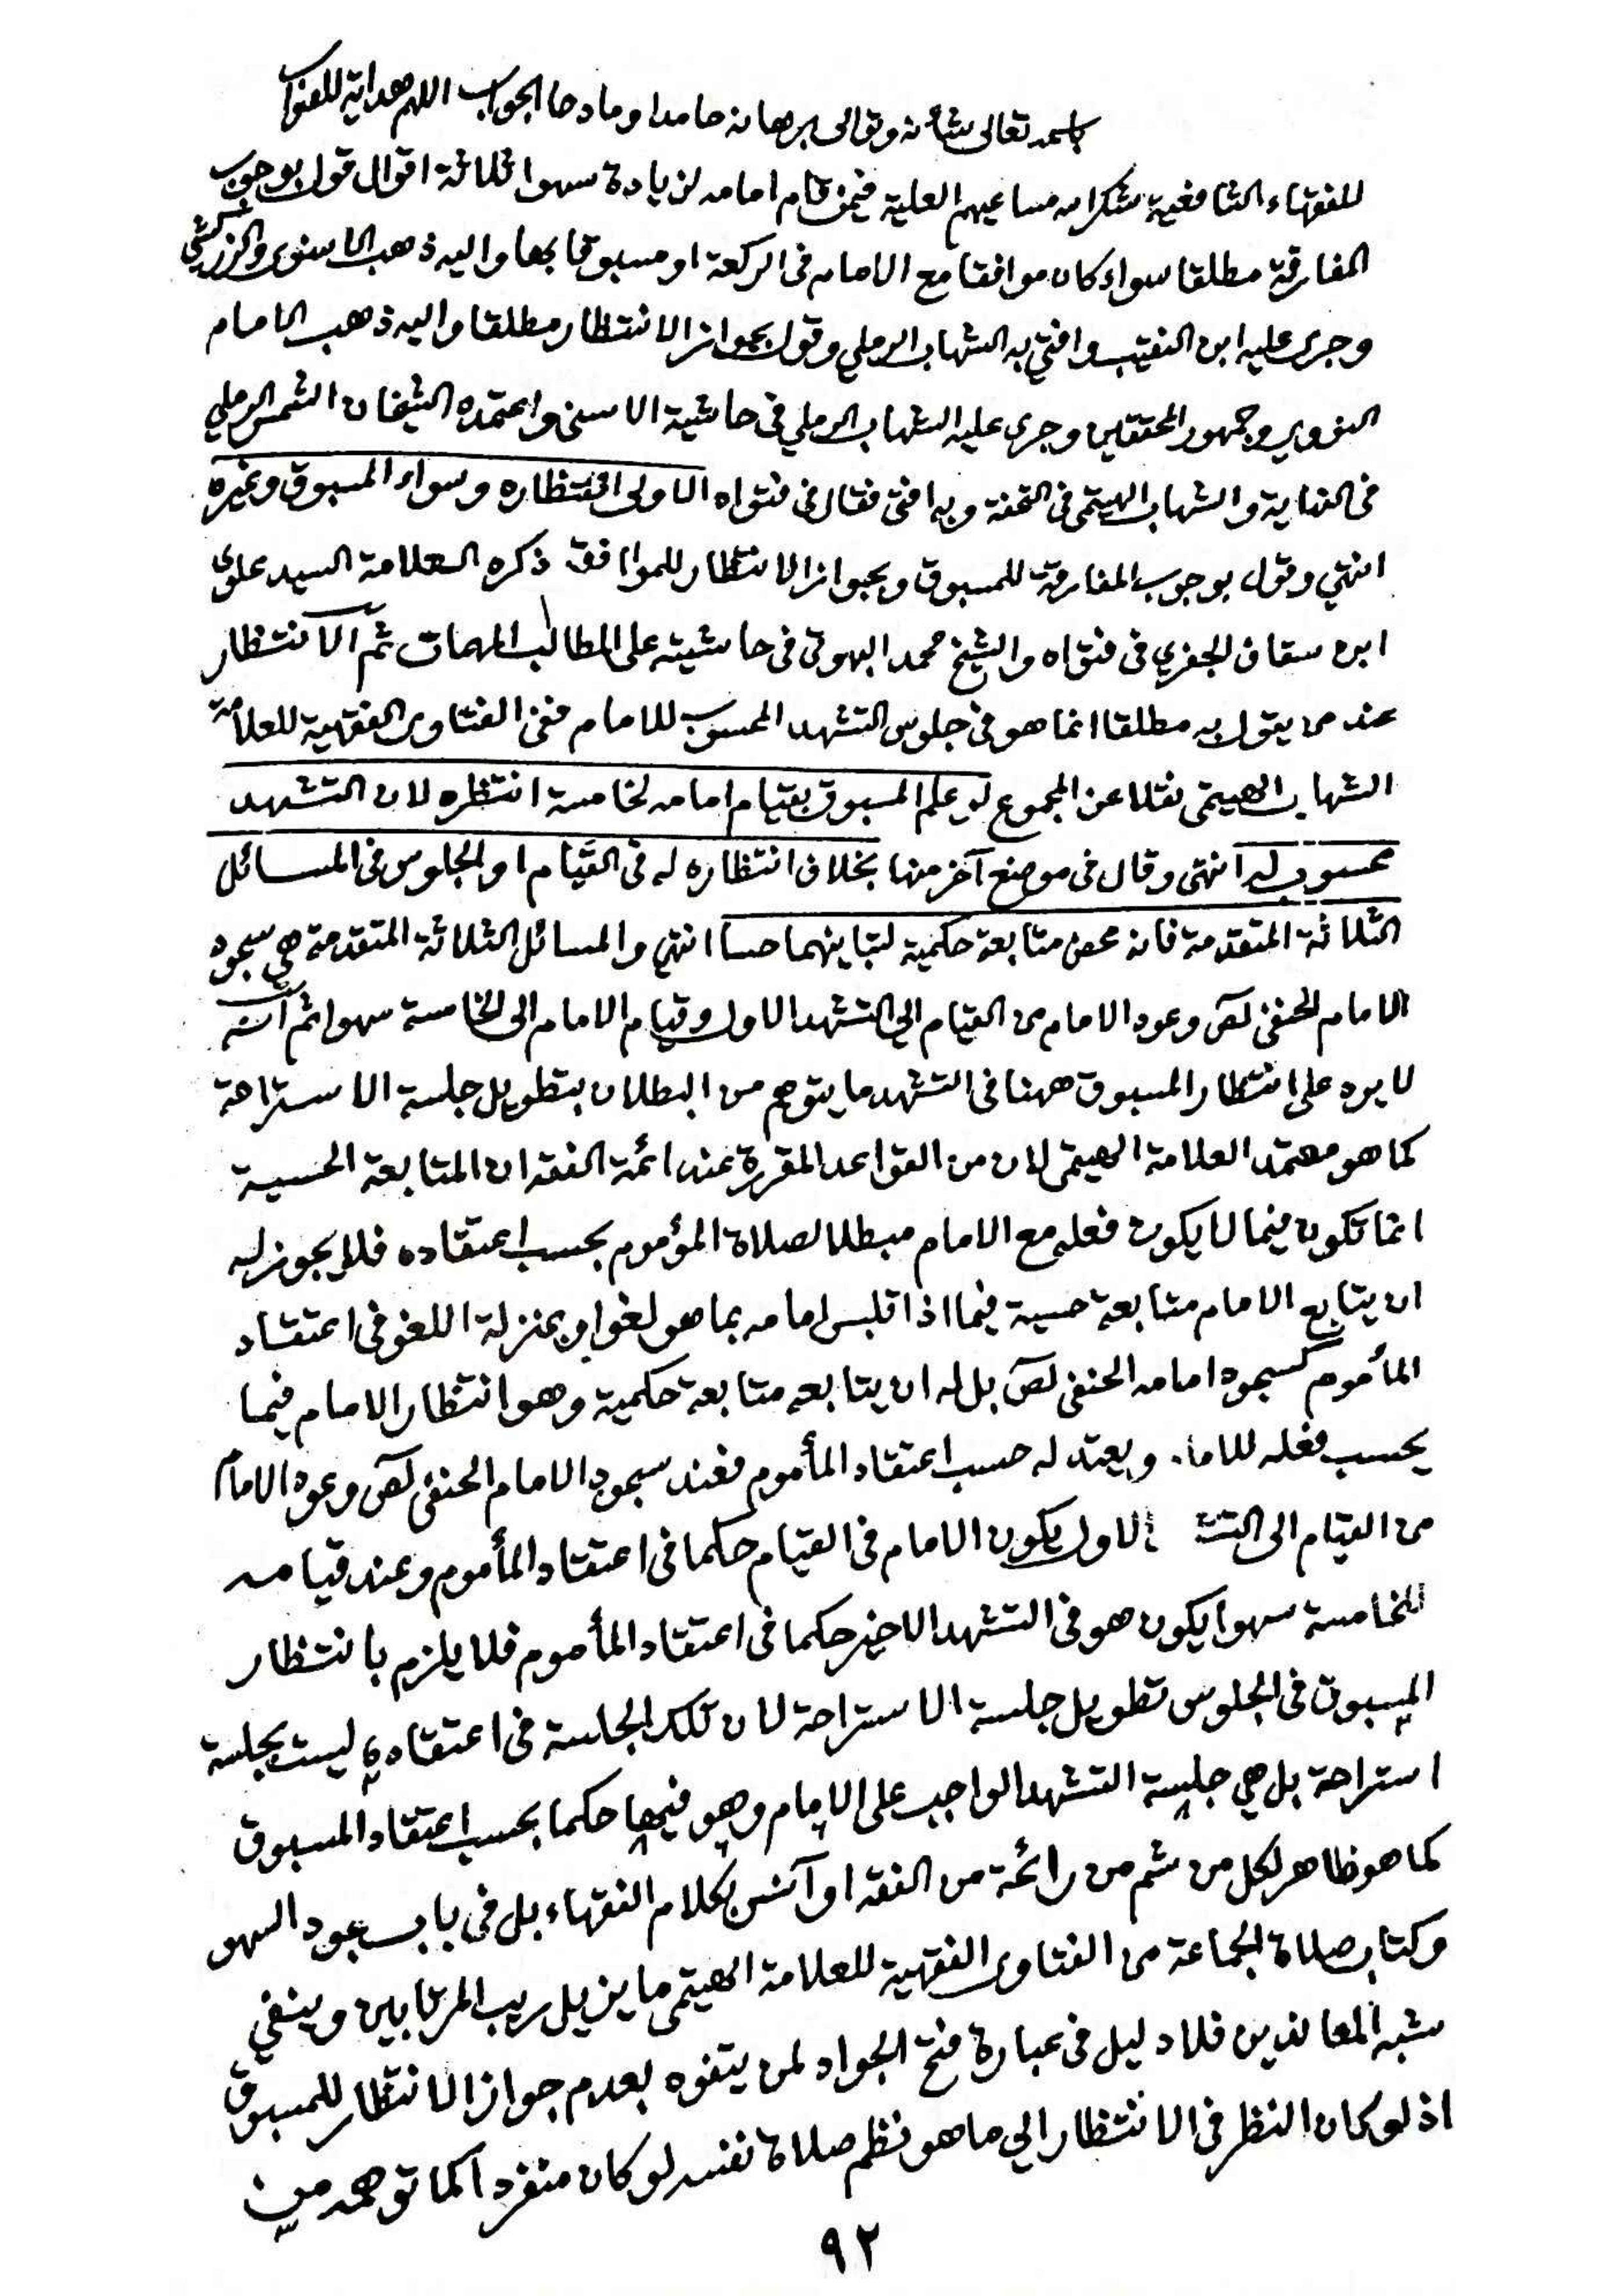 باسمه تعالى شأنه وتوالى برهانه حامدا ومادحا الجواب اللهم هداية للصواب
للفقهاء الشافعية شكر الله مساعيهم العلية فيمن قام امامه لزيادة سهوا ثلاثة اقوال قول بوجوب
المفارقة مطلقا سواء كان موافقا مع الامام فى الركعة او مسبوقا بها واليه ذهب الاسنوى والزركشي
وجرى عليه ابن النقيب وافتي به الشهاب الرملي وقول بجواز الانتظار مطلقا واليه ذهب الامام
النووي وجمهور المحققين وجرى عليه الشهاب الرملي فى حاشية الاسنى واعتمده الشيخان الشمس الرملي
فى النهاية والشهاب الهيتمى فى التحفة وبه افتى فقال فى فتواه الاولى انتظاره وسواء المسبوق وغيره
انتهي وقول بوجوب المفارقة للمسبوق وبجواز الانتظار للموافق ذكره العلامة السيد علوي
ابن سقاف الجفري فى فتواه والشيخ محمد البهوتى فى حاشيته على المطالب المهمات ثم الانتظار
عند من يقول به مطلقا انما هو فى جلوس التشهد المحسوب للامام ففى الفتاوى الفقهية للعلامة
الشهاب الهيتمى نقلا عن المجموع لو علم المسبوق بقيام امامه لخامسة انتظره لان التشهد
محسوب له انتهى وقال فى موضع آخر منها بخلاف انتظاره له فى القيام او الجلوس فى المسائل
الثلاثة المتقدمة فانه محض متابعة حكمية لتباينهما حسا انتهي والمسائل الثلاثة المتقدمة هي سجود
الامام الحنفي لص وعود الامام من القيام الي التشهد الاول وقيام الامام الى الخامسة سهوا ثم انه
لا يرد على انتظار المسبوق ههنا فى التشهد ما يتوهم من البطلان بتطويل جلسة الاستراحة
كما هو معتمد العلامة الهيتمى لان من القواعد المقررة عند ائمة الفقه ان المتابعة الحسية
انما تكون فيما لا يكون فعله مع الامام مبطلا لصلاة المؤموم بحسب اعتقاده فلا يجوز له
ان يتابع الامام متابعة حسية فيما اذا تلبس امامه بما هو لغو او بمنزلة اللغو فى اعتقاد
المأموم كسجود امامه الحنفى لص بل له ان يتابعه متابعة حكمية وهو انتظار الامام فيما
يحسب فعله للاما. ويعتد له حسب اعتقاد المأموم فعند سجود الامام الحنفي لص وعود الامام
من القيام الى التش الاول يكون الامام فى القيام حكما فى اعتقاد المأموم وعند قيامه
للخامسة سهوا يكون هو فى التشهد الاخير حكما فى اعتقاد المأموم فلا يلزم بانتظار
المسبوق فى الجلوس تطويل جلسة الاستراحة لان تلك الجلسة فى اعتقاده ليست بجلسة
استراحة بل هي جلسة التشهد الواجب على الامام وهو فيها حكما بحسب اعتقاد المسبوق
كما هو ظاهر لكل من شم من رائحة من الفقه او آنس بكلام الفقهاء بل فى باب سجود السهو
وكتاب صلاة الجماعة من الفتاوى الفقهية للعلامة الهيتمى ما يزيل ريب المرتابين وينفي
شبه المعاندين فلا دليل فى عبارة فتح الجواد لمن يتفوه بعدم جواز الانتظار للمسبوق
اذ لو كان النظر فى الانتظار الي ما هو نظم صلاة نفسه لو كان منفردا كما توهمه من
٩٢